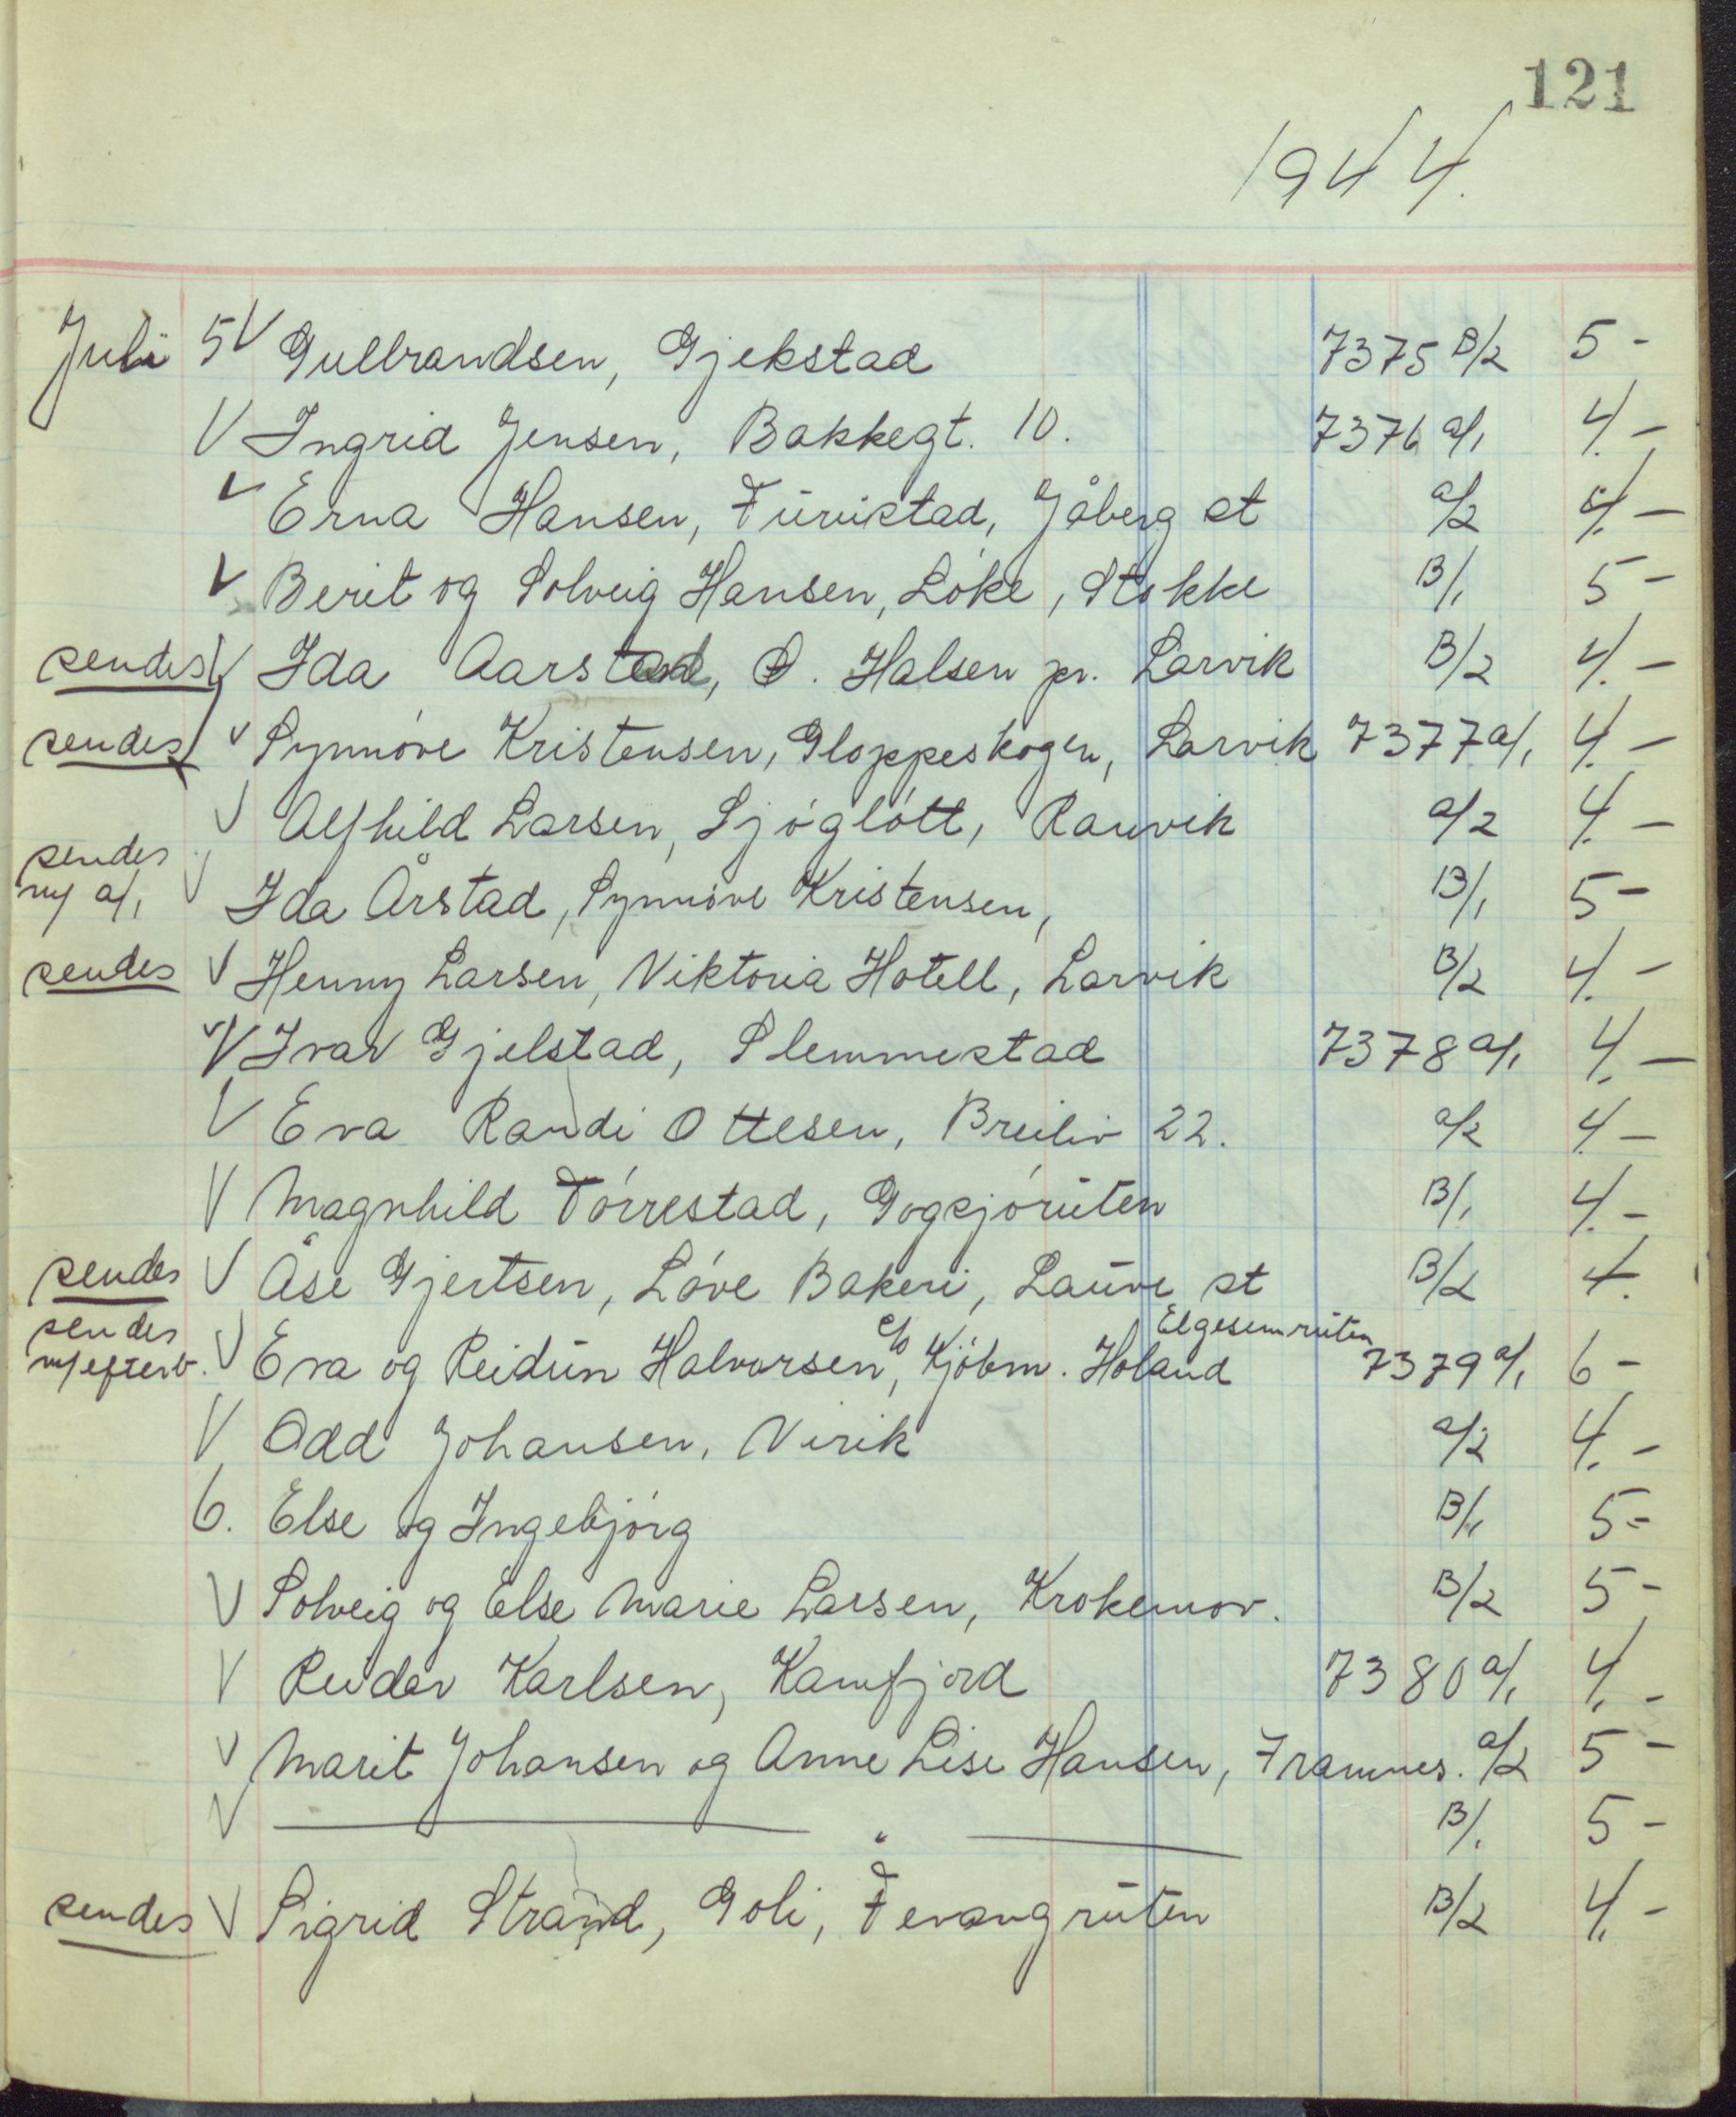 121
1944.
Juli 5 V Gulbrandsen, Gjekstad 7375 B/2 5 -
V Ingrid Jensen, Bakkegt. 10. 7376 a/1 4. -
V Erna Hansen, Furustad, Jåberg st a/2 4. -
V Berit og Solveig Hansen, Löke, Stokke B/1 5 -
sendes V Ida Aarstad, Ö. Halsen pr. Larvik B/2 4. -
sendes V Synnöve Kristensen, Gloppeskogen, Larvik 7377 a/1 4. -
V Alfhild Larsen, Sjöglött, Ranvik a/2 4. -
sendes
m/ a/1 V Ida Årstad, Synnöve Kristensen, B/1 5 -
sendes V Henny Larsen, Viktoria Hotell, Larvik B/2 4. -
V Ivar Gjelstad, Slemmestad 7378 a/1 4. -
V Eva Randi Ottesen, Breiliv 22. a/2 4. -
V Magnhild Törrestad, Gogsjöruten B/1 4. -
sendes V Åse Gjertsen, Löve Bakeri, Lauve st B/2 4.
Elgesemruten
sendes
m/efterb. V Eva og Reidun Halvorsen, c/o Kjöbm. Holand 7379 a/1 6 -
V Odd Johansen, Virik a/2 4. -
6. Else og Ingebjörg B/1 5 -
V Solveig og Else Marie Larsen, Krokemov. B/2 5 -
V Reidar Karlsen, Kamfjord 7380 a/1 4. -
V Marit Johansen og Anne Lise Hansen, Framnes. a/2 5 -
V — " — B/1 5 -
sendes V Sigrid Strand, Goli, Fevangruten B/2 4. -